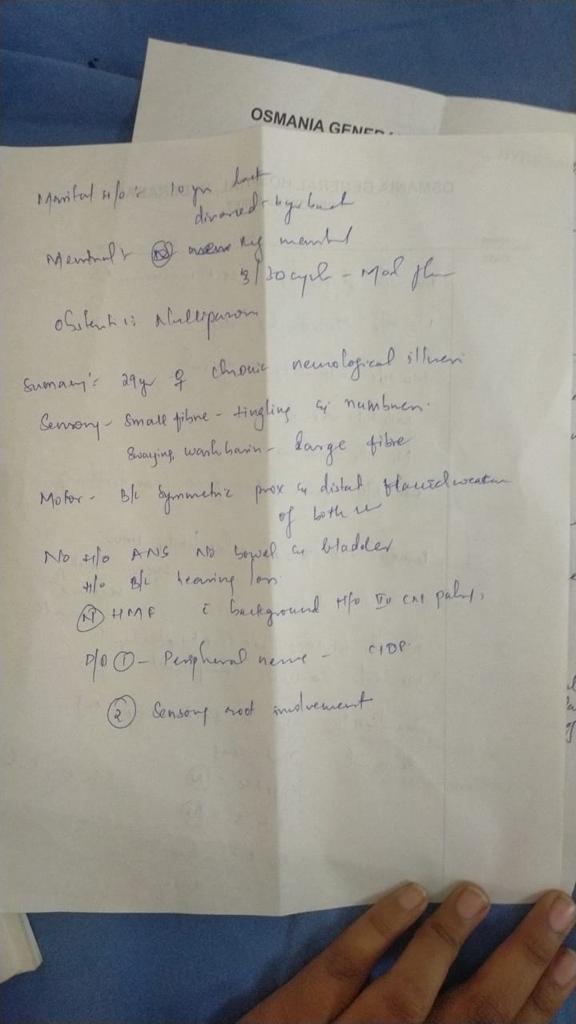 OSMANIA GENERA
Marital H/o : 10 yr back
divorced - by back
Menstrual : (N) reg menstrual
3/30 cycle - Mod flow
Obstetric : Nulliparous
Summary : 29 yr ♀ chronic neurological illness
Sensory - Small fibre - tingling & numbness.
Swaying, wash basin - Large fibre
Motor - B/L Symmetric prox & distal flaccid weakness
of both
No H/o ANS No bowel & bladder
H/o B/L hearing loss
(N) HMF c background H/o palsy,
D/D ① - Peripheral nerve - CIDP
② Sensory root involvement